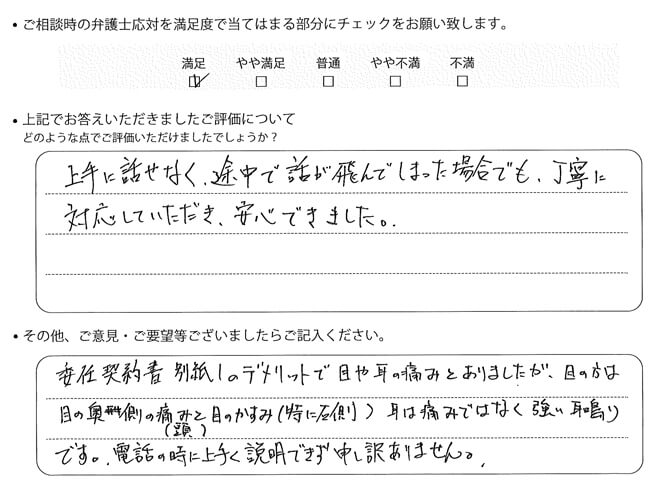 • ご相談時の弁護士応対を満足度で当てはまる部分にチェックをお願い致します。
満足 やや満足 普通 やや不満 不満
• 上記でお答えいただきましたご評価について
どのような点でご評価いただけましたでしょうか？
上手に話せなく、途中で話が飛んでしまった場合でも、丁寧に
対応していただき、安心できました。
• その他、ご意見・ご要望等ございましたらご記入ください。
委任契約書 別紙1のデメリットで目や耳の痛みとありましたが、目の方は
目の奥側の痛みと目のかすみ(特に右側) 耳は痛みではなく強い耳鳴り
(頭)
です。電話の時に上手く説明できず申し訳ありません。